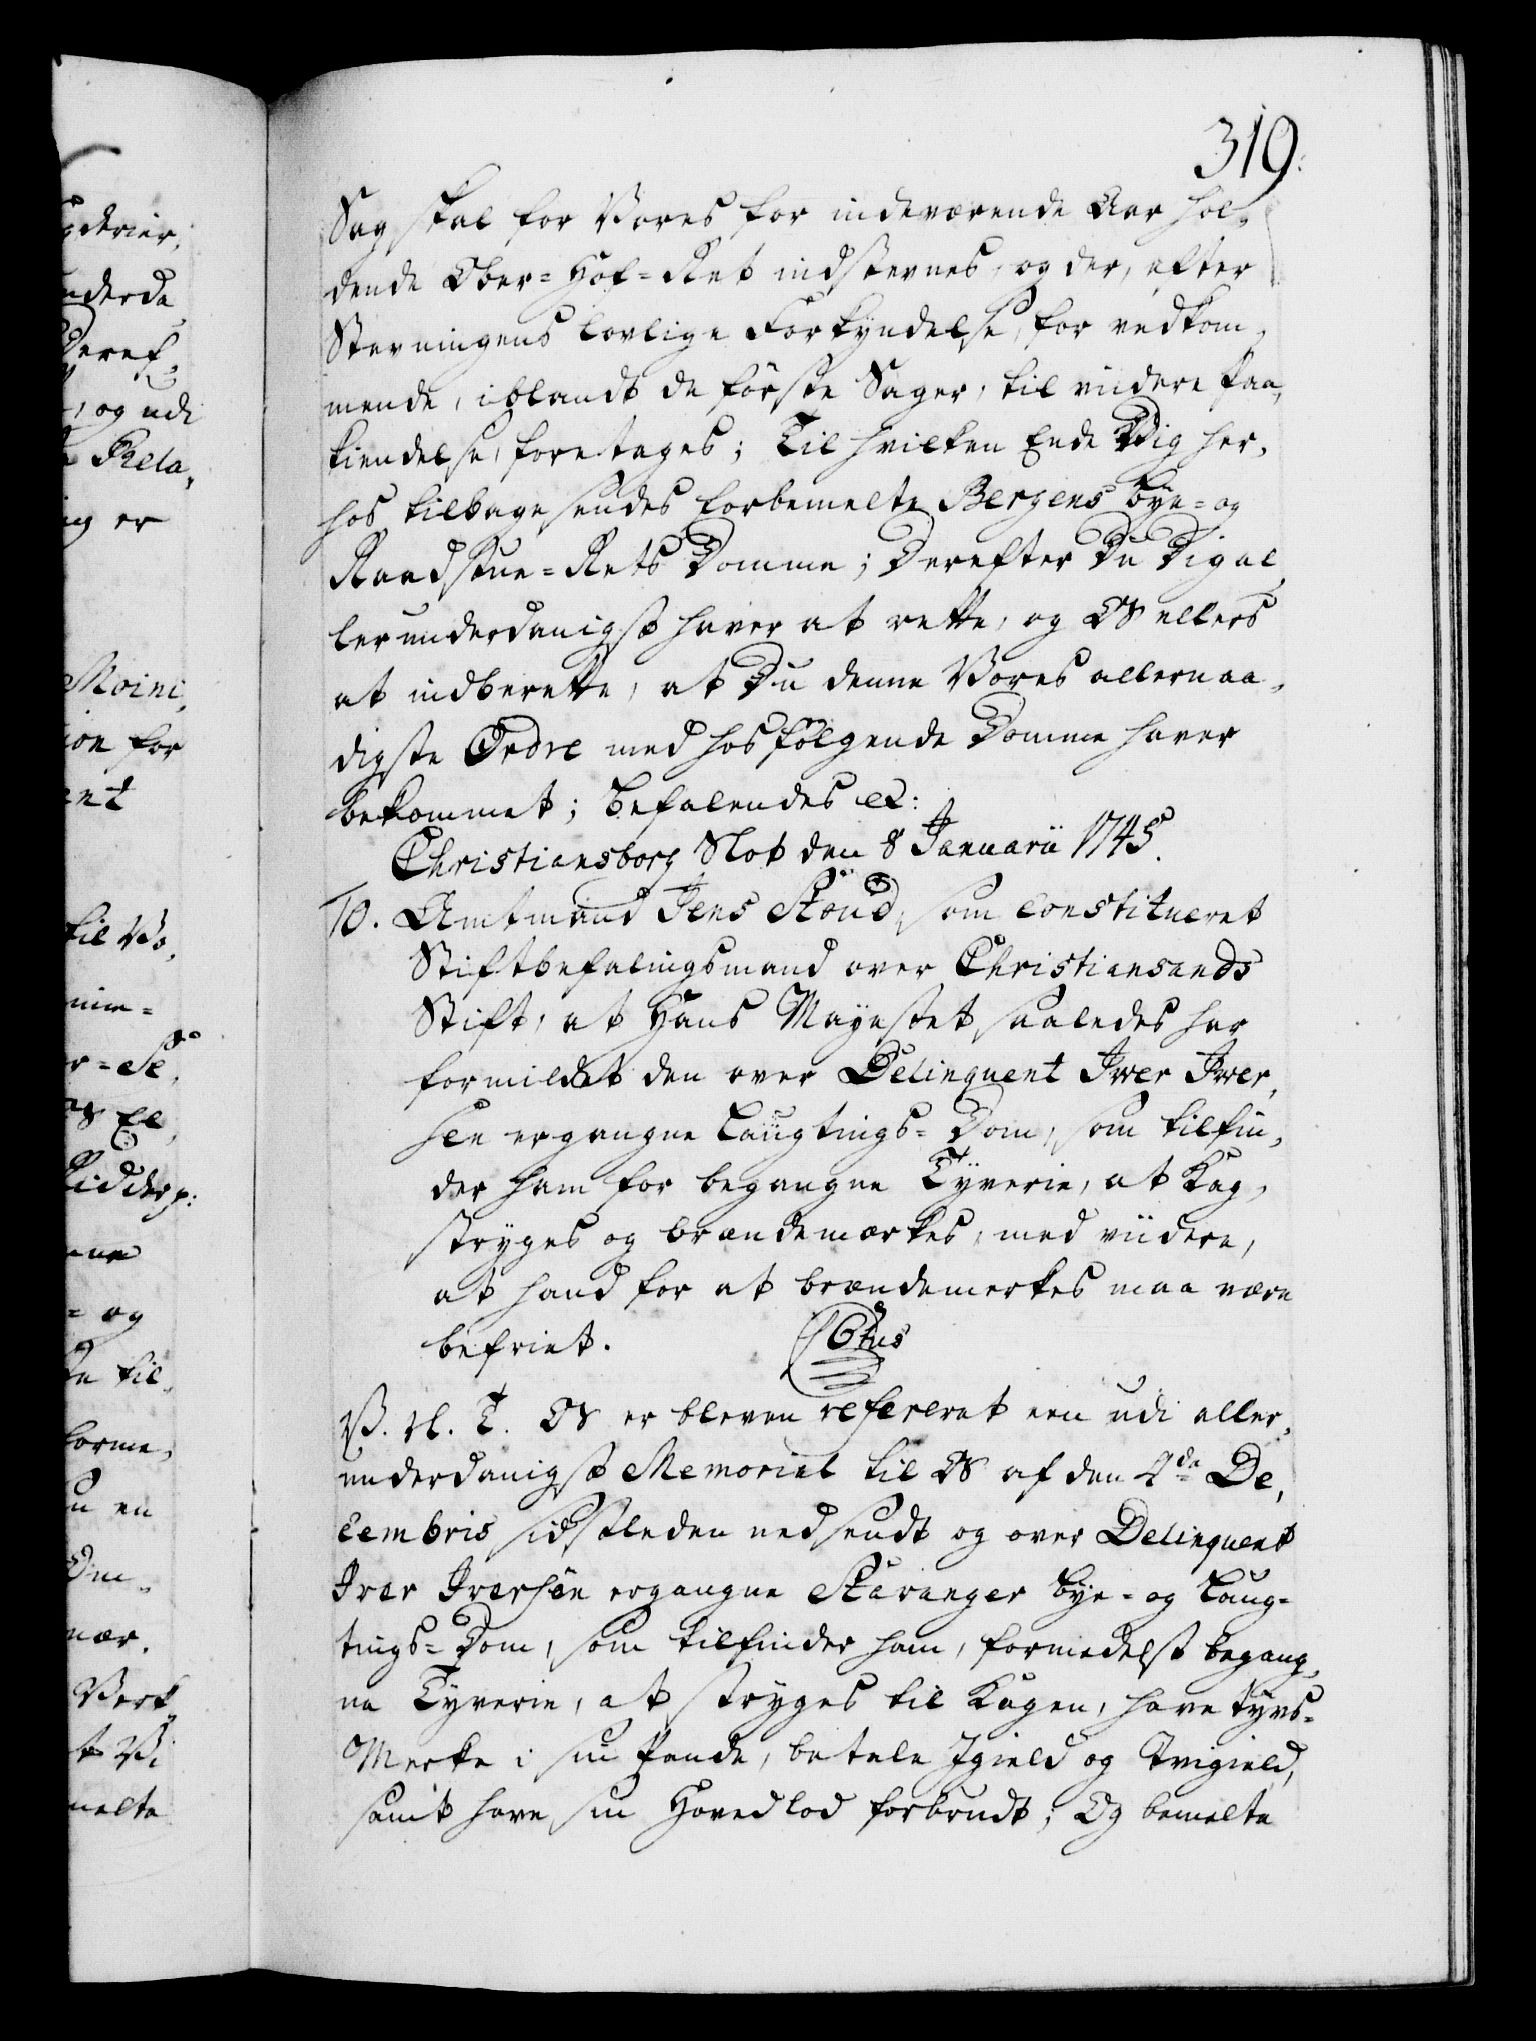 319.
Sag skal for Vores for indeværende Aar hol-
dende Ober-Hof-Ret indstevnes, og der, efter
Stevningens lovlige Forkyndelse, for vedkom-
mende, iblandt de förste Sager, til viidere paa-
kiendelse, foretages; Til hvilken Ende Dig her-
hos tilbage sendes forbemelte Bergens bye- og
Raadstue-Rets Domme; Derefter Du Dig al-
lerunderdanigst haver at rette, og OS ellers
at indberette, at Du denne Vores allernaa-
digste Ordre med hosfölgende Domme haver
bekommet; Befalendes etc:
Christiansborg Slot den 8 Januarii 1745.
10. Amtmand Jens Skoud, som constitueret
Stiftbefalingsmand over Christiansands
Stift, at Hans Mayestet saaledes har
formildet den over Delinquent Iver Iver-
sen ergangne Laugtings-Dom, som tilfin-
der ham for begangne Tyverie, at Kag-
stryges og brændemærkes, med viidere,
at hand for at brændemerkes maa være
befriet.
V. N. T. OS er bleven refereret een udi aller-
underdanigst Memorial til OS af den 2da De-
cembris sidstleden nedsendt og over Delinquent
Iver Iversen ergangne Stavanger bye- og Laug-
tings-Dom, som tilfinder ham, formedelst begang-
ne Tyverie, at stryges til Kagen, have tyvs-
Merke i sin Pande, betale Igield og Tvigield,
samt have sin Hovedlod forbrudt; Og bemelte
gderier,
underda
Deref-
, og udi
Rela-
ig er
ion for
ent
til Vo-
OS El-
og
til-
en
Verk
t Vi
melte